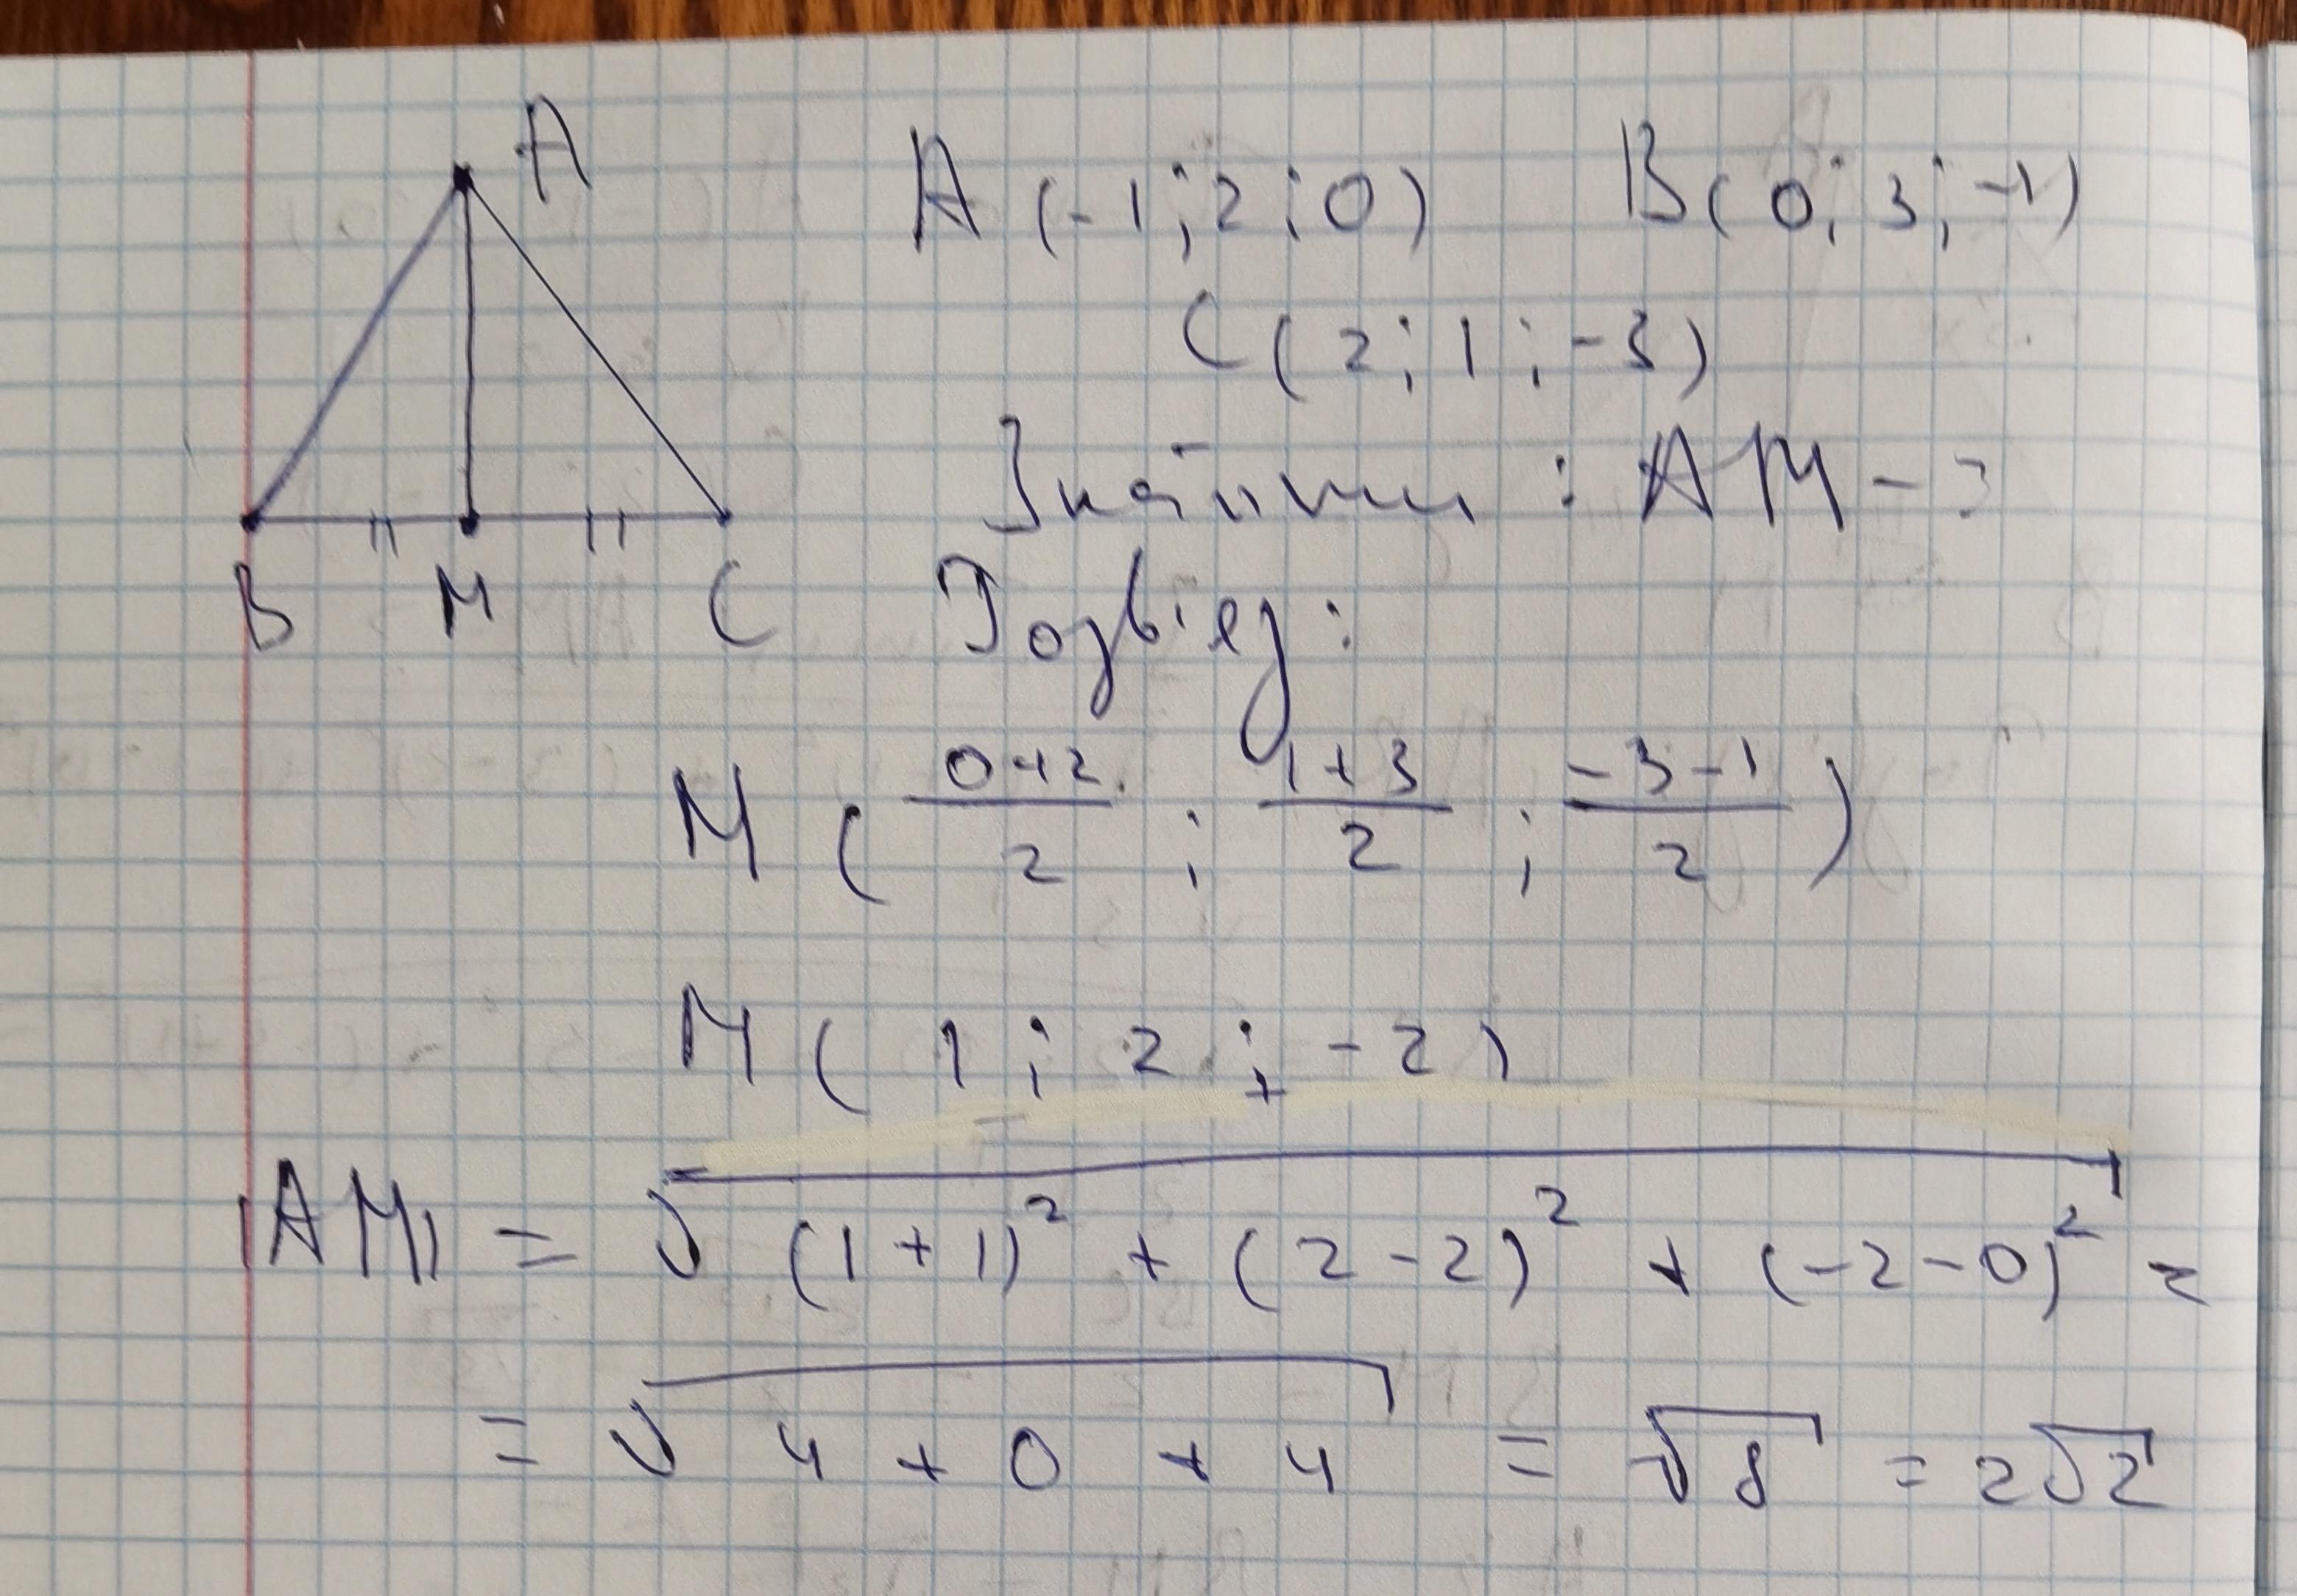 A
A (-1; 2; 0) B(0; 3; -1)
C(2; 1; -3)
Знайти : AM - ?
B M C
Розв'яз:
M ( (0+2)/2 ; (1+3)/2 ; (-3-1)/2 )
M ( 1 ; 2 ; -2 )
|AM| = √((1+1)² + (2-2)² + (-2-0)²) =
= √(4 + 0 + 4) = √8 = 2√2